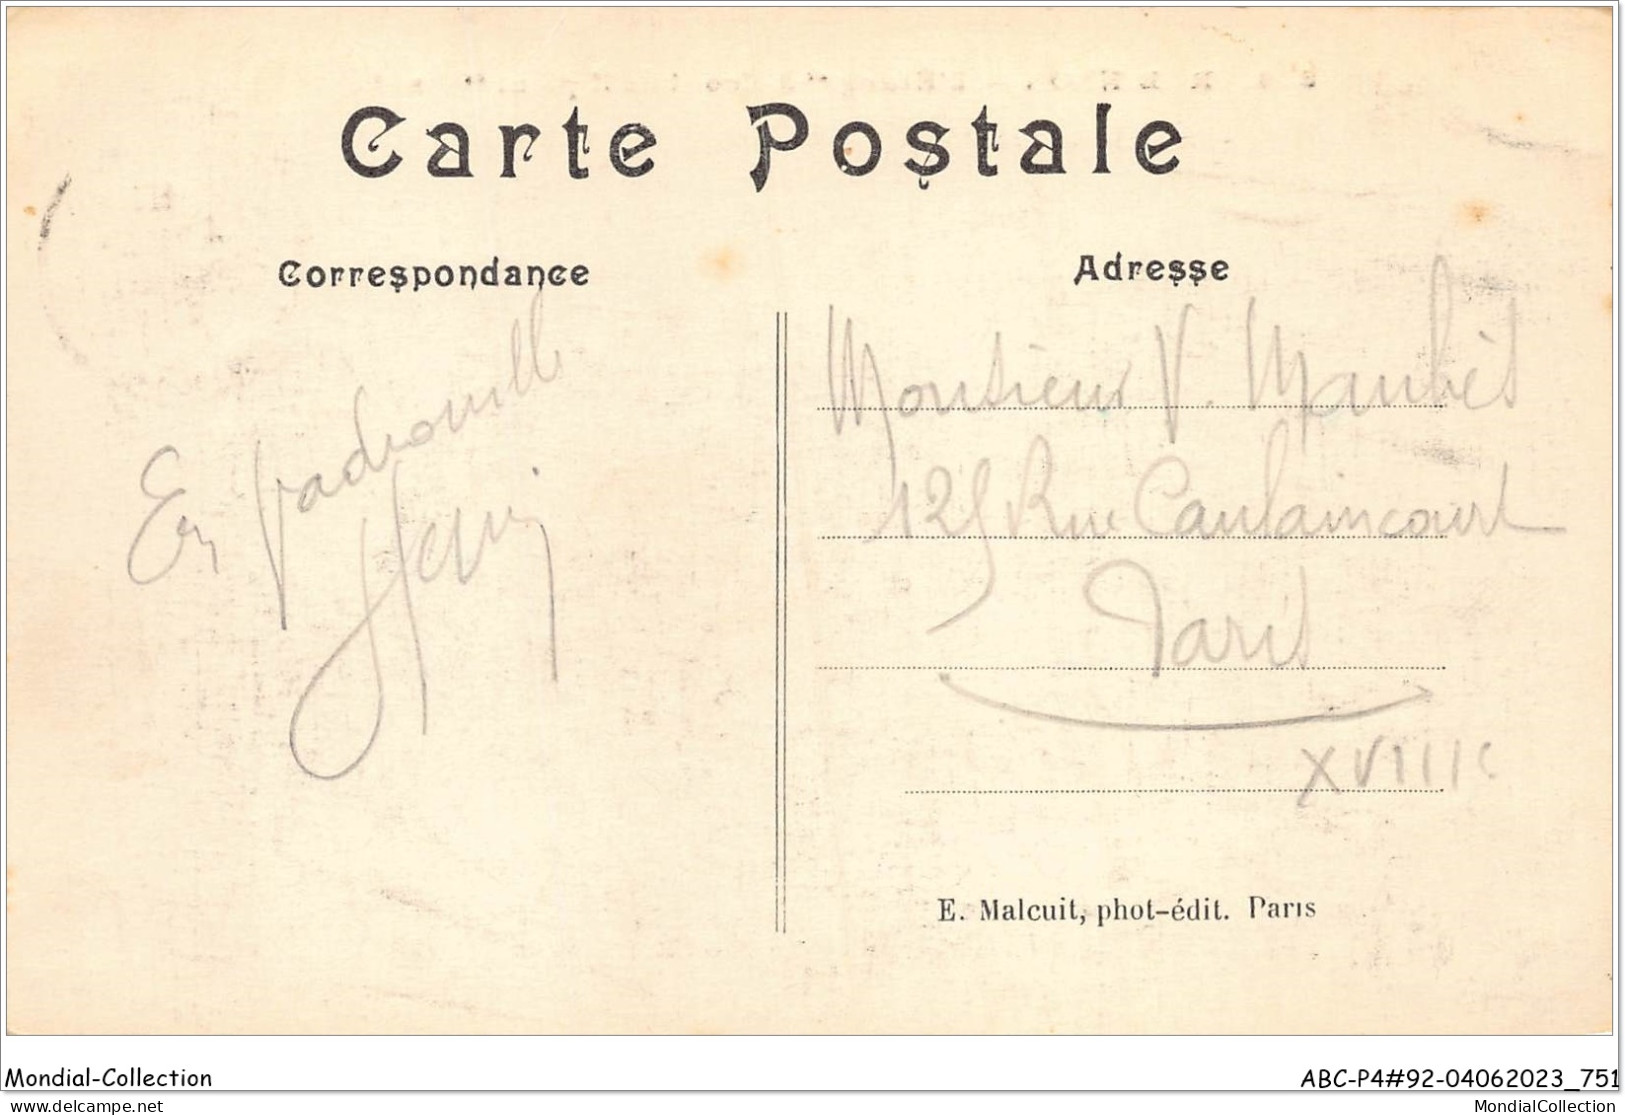 Carte Postale
Correspondance
En
Adresse
Monsieur V.
125 Rue Caulaincourt
Paris
XVIIIe
E. Malcuit, phot-édit. Paris
Mondial-Collection
ABC-P4#92-04062023_751
delcampe.net
MondialCollection